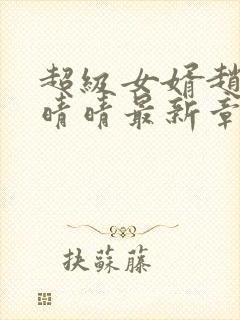 超級女婿趙
晴晴最新章
抉蘇藤